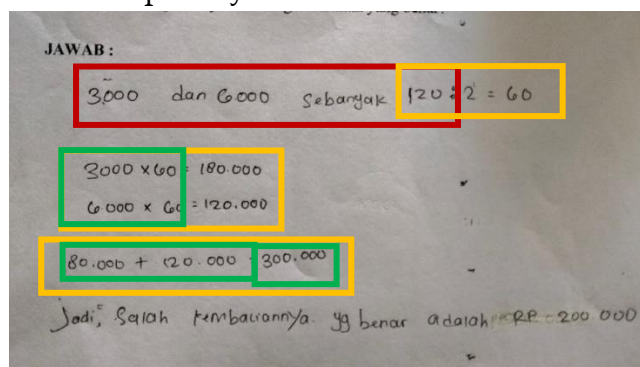 JAWAB :
3,000 dan 6000 Sebanyak 120 : 2 = 60
3000 x 60 = 180.000
6.000 x 60 = 120.000
80.000 + 120.000 300.000
Jadi, Salah kembaliannya yg benar adalah RP 200 000